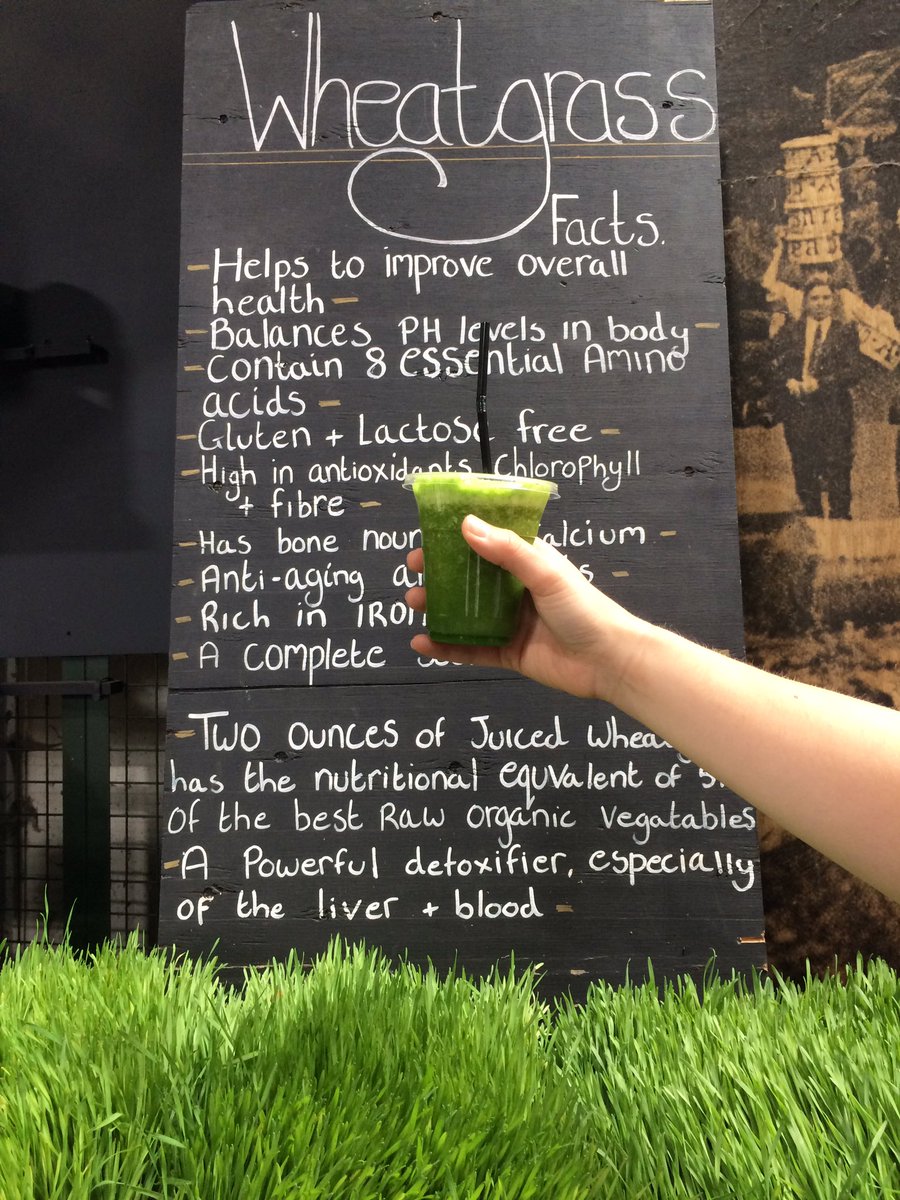 Wheatgrass
Facts.
- Helps to improve overall
health -
- Balances PH levels in body -
- Contain 8 essential Amino
acids -
- Gluten + Lactose free -
- High in antioxidants, Chlorophyll
+ fibre -
- Has bone alcium -
- Anti-aging
- Rich in IRON
- A complete
- Two ounces of Juiced
has the nutritional equvalent of
of the best Raw organic vegatables
- A Powerful detoxifier, especially
of the liver + blood -